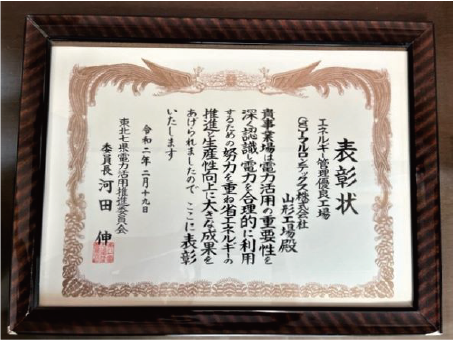 表彰状
エネルギー管理優良工場
株式会社
山形工場殿
貴事業場は電力活用の重要性を
深く認識し電力を合理的に利用
するための努力を重ね省エネルギーの
推進と生産性向上に大きな成果を
あげられましたので ここに表彰
いたします
令和二年二月十九日
東北七県電力活用推進委員会
委員長 河田 伸